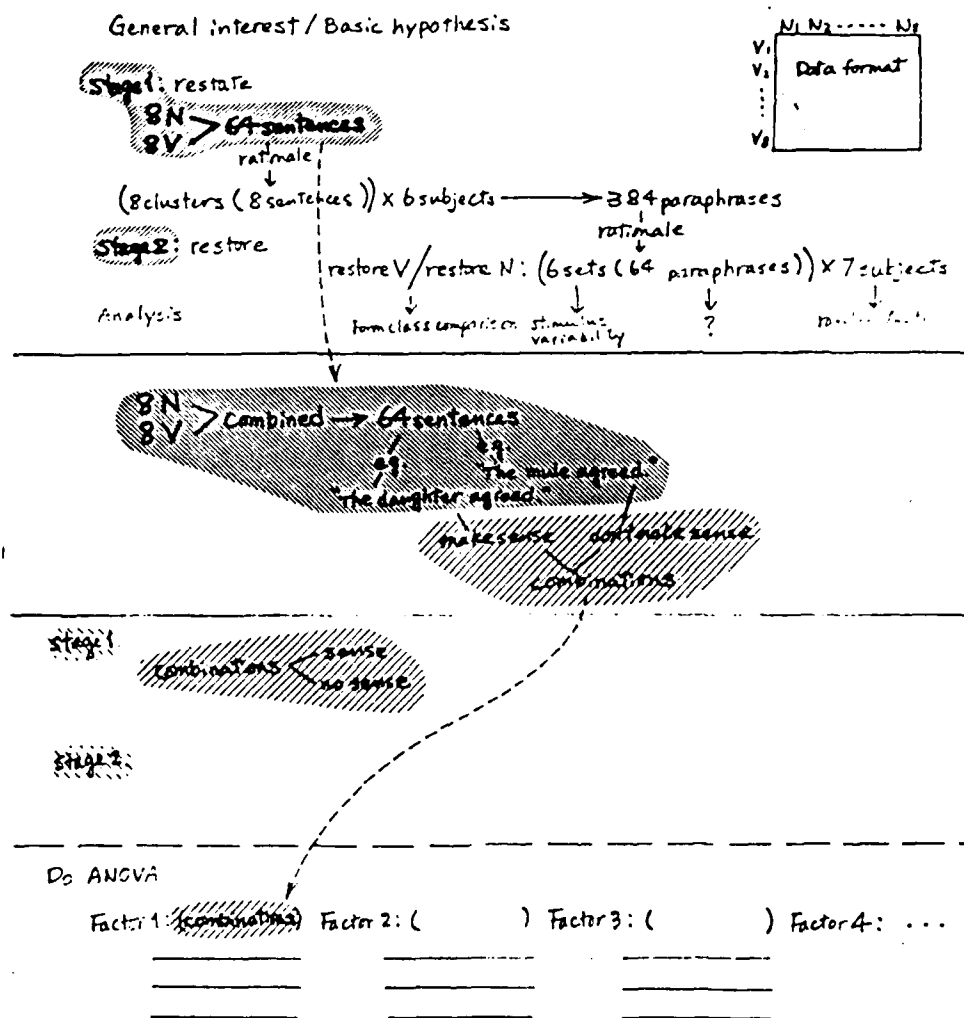 General interest / Basic hypothesis
N1 N2 ----- N8
V1
V2
V8
Data format
Stage1: restate
8N
8V
> 64 sentences
rationale
(8 clusters (8 sentences)) × 6 subjects → 384 paraphrases
rationale
Stage2: restore
restore V / restore N: (6 sets (64 paraphrases)) × 7 subjects
Analysis
Form class comparison
stimulus
variability
?
8N
8V
> combined → 64 sentences
eg.
eg.
"The mule agreed."
"The daughter agreed."
make sense
don't make sense
combinations
stage1
combinations
sense
no sense
stage2
Do ANOVA
Factor 1: (combinations) Factor 2: ( ) Factor 3: ( ) Factor 4: ...